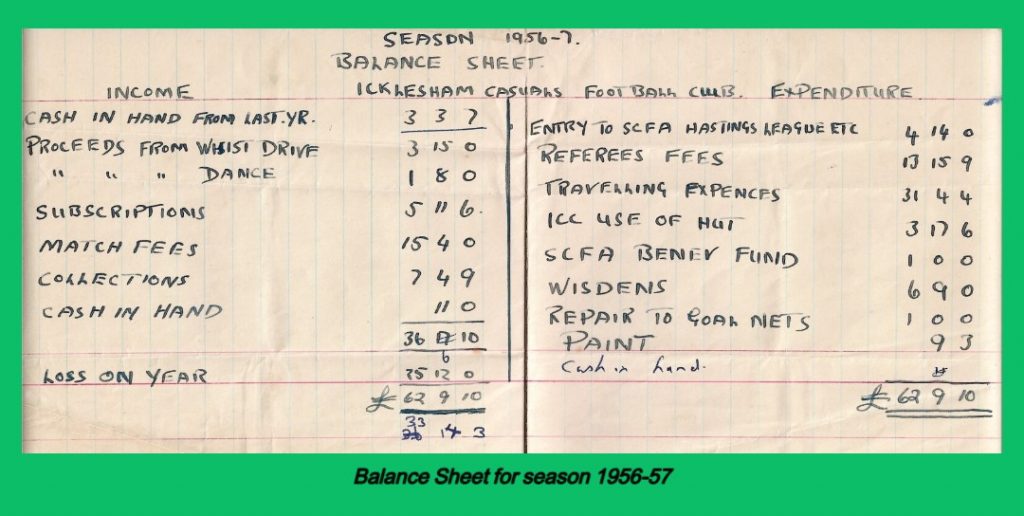 SEASON 1956-7.
BALANCE SHEET.
ICKLESHAM CASUALS FOOTBALL CLUB.
INCOME
CASH IN HAND FROM LAST. YR. 3 3 7
PROCEEDS FROM WHIST DRIVE 3 15 0
" " " DANCE 1 8 0
SUBSCRIPTIONS 5 11 6.
MATCH FEES 15 4 0
COLLECTIONS 7 4 9
CASH IN HAND 11 0
36 10
6
LOSS ON YEAR 25 12 0
£ 62 9 10
33
14 3
EXPENDITURE
ENTRY TO SCFA HASTINGS LEAGUE ETC 4 14 0
REFEREES FEES 13 15 9
TRAVELLING EXPENCES 31 4 4
ICC USE OF HUT 3 17 6
SCFA BENEV FUND 1 0 0
WISDENS 6 9 0
REPAIR TO GOAL NETS 1 0 0
PAINT 9 3
Cash in hand.
£ 62 9 10
Balance Sheet for season 1956-57